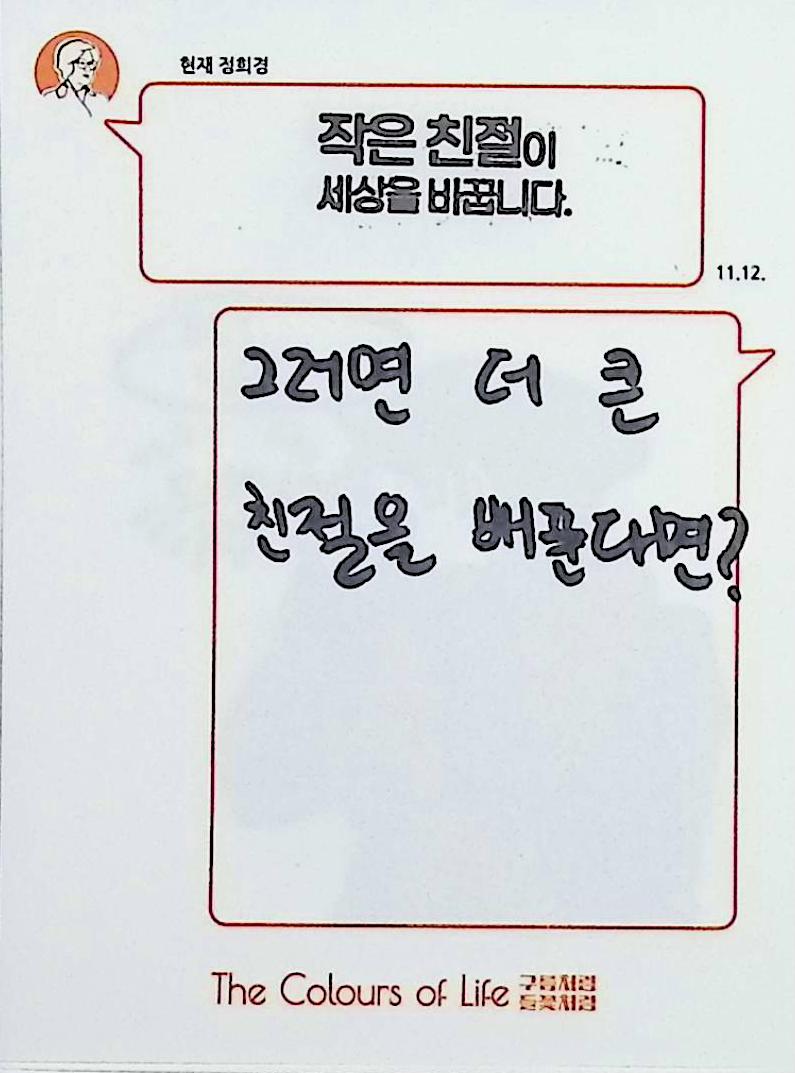 현재 정희경
작은 친절이
세상을 바꿉니다.
11.12.
그러면 더 큰
친절을 베푼다면?
The Colours of Life 구름처럼
들꽃처럼